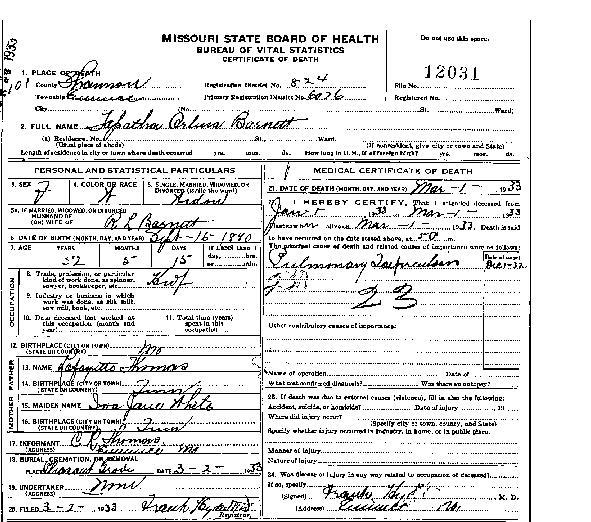 MISSOURI STATE BOARD OF HEALTH
BUREAU OF VITAL STATISTICS
CERTIFICATE OF DEATH
Do not use this space.
12031
1. PLACE OF DEATH
County Shannon Registration District No. 824 File No.
Township Eminence Primary Registration District No. 6026 Registered No.
City No. St. Ward
2. FULL NAME Barnett
(a) Residence, No. St. Ward.
(Usual place of abode) (If nonresident, give city or town and State)
Length of residence in city or town where death occurred yrs. mos. ds. How long in U. S., if of foreign birth? yrs. mos. ds.
PERSONAL AND STATISTICAL PARTICULARS
3. SEX F
4. COLOR OR RACE W
5. SINGLE, MARRIED, WIDOWED, OR DIVORCED (write the word) Widow
5a. IF MARRIED, WIDOWED, OR DIVORCED
HUSBAND OF
(OR) WIFE OF R L Barnett
6. DATE OF BIRTH (MONTH, DAY, AND YEAR) Sept-15-1880
7. AGE YEARS 52 MONTHS 5 DAYS 15 If LESS than 1 day, hrs. or min.
OCCUPATION
8. Trade, profession, or particular kind of work done, as spinner, sawyer, bookkeeper, etc. Hwf
9. Industry or business in which work was done, as silk mill, saw mill, bank, etc.
10. Date deceased last worked at this occupation (month and year)
11. Total time (years) spent in this occupation
12. BIRTHPLACE (CITY OR TOWN) Mo
(STATE OR COUNTRY)
FATHER
13. NAME Lafayette Thomas
14. BIRTHPLACE (CITY OR TOWN) Tenn
(STATE OR COUNTRY)
MOTHER
15. MAIDEN NAME Jane White
16. BIRTHPLACE (CITY OR TOWN) Tenn
(STATE OR COUNTRY)
17. INFORMANT C R Thomas
(ADDRESS) Eminence Mo
18. BURIAL, CREMATION, OR REMOVAL
PLACE Pleasant Grove DATE 3-2- 1933
19. UNDERTAKER None
(ADDRESS)
20. FILED 3-2- 1933 Frank Hyde M.D.
Registrar.
MEDICAL CERTIFICATE OF DEATH
21. DATE OF DEATH (MONTH, DAY, AND YEAR) Mar-1- 1933
22. I HEREBY CERTIFY, That I attended deceased from
Jan 1 1933 Mar-1- 1933
alive on Mar-1 1933 Death is said
to have occurred on the date stated above, at -0- m.
The principal cause of death and related causes of importance were as follows:
Date of onset
Pulmonary Tuberculosis Dec 1-32
23
Other contributory causes of importance:
Name of operation Date of
What test confirmed diagnosis? Was there an autopsy?
23. If death was due to external causes (violence), fill in also the following:
Accident, suicide, or homicide? Date of injury 19
Where did injury occur?
(Specify city or town, county, and State)
Specify whether injury occurred in industry, in home, or in public place.
Manner of injury
Nature of injury
24. Was disease or injury in any way related to occupation of deceased?
If so, specify
(Signed) Frank Hyde M. D.
(Address) Eminence Mo.